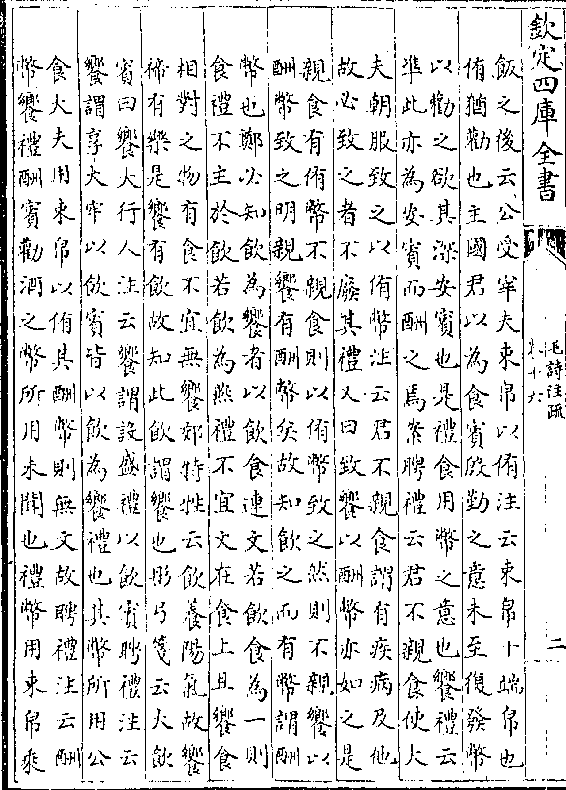 欽定四庫全書
毛詩注疏
卷十六
二
飯之後云公受宰夫束帛以侑注云束帛十端帛也
侑猶勸也主國君以為食賓殷勤之意未至復發幣
以勸之欲其深安賓也是禮食用幣之意也饗禮云
準此亦為安賓而酬之焉案聘禮云君不親食使大
夫朝服致之以侑幣注云君不親食謂有疾病及他
故必致之者不廢其禮又曰致饗以酬幣亦如之是
親食有侑幣不親食則以侑幣致之然則不親饗以
酬幣致之明親饗有酬幣矣故知飲之而有幣謂酬
幣也鄭必知飲為饗者以飲食連文若飲食為一則
食禮不主於飲若飲為燕禮不宜文在食上且饗食
相對之物有食不宜無饗郊特牲云飲養陽氣故饗
禘有樂是饗有飲故知此飲謂饗也彤弓箋云大飲
賓曰饗大行人注云饗謂設盛禮以飲賓聘禮注云
饗謂享大牢以飲賓皆以飲為饗禮也其幣所用公
食大夫用束帛以侑其酬幣則無文故聘禮注云酬
幣饗禮酬賓勸酒之幣所用未聞也禮幣用束帛乘